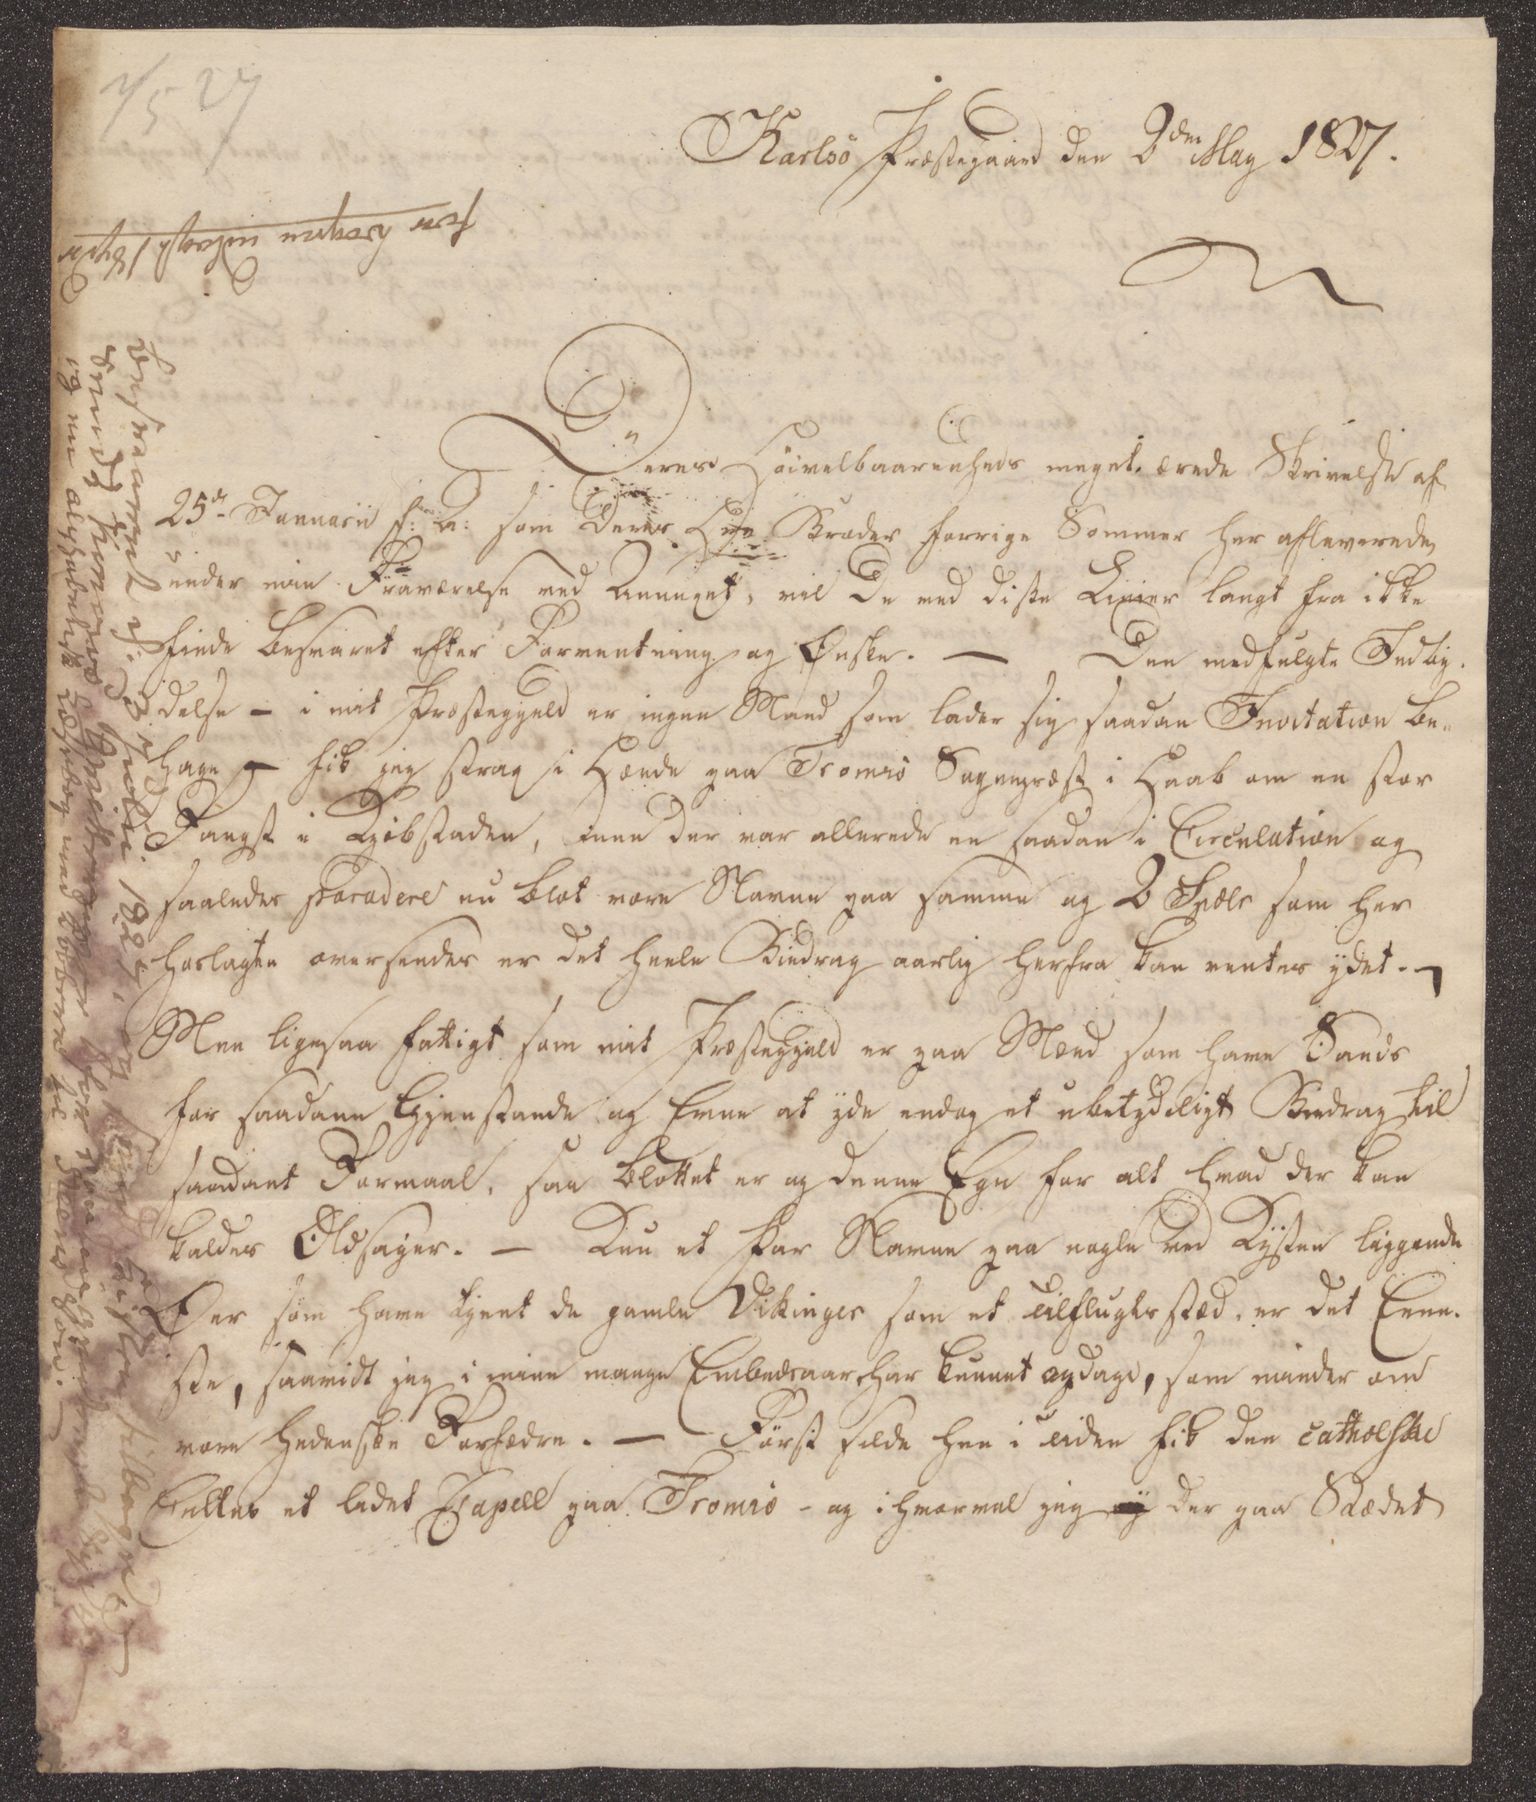 7/5 27
Karlsö Præstegaard den 2den May 1827.
Deres Höivelbaarenheds meget ærede Skrivelse af
25de Januarii f: A: som Deres Hrr Broder forrige Sommer her afleverede,
under min Fraværelse ved Annexet, vil De ved disse Linier langt fra ikke
finde besvaret efter Forventning og Ønske. — Den medfulgte Indby-
delse – i mit Præstegjeld er ingen Mand som lader sig saadan Invitation be-
hage – fik jeg strax i Hænde paa Tromsö Sogneprest i Haab om en stor
Fangst i Kjöbstaden, men der var allerede en saadan i Circulation og
saaledes paraderer nu blot vore Navne paa samme og 2 Spdlr som her
hoslagte oversendes er det heele Bidrag aarlig herfra kan ventes ydet. –
Men ligesaa fattigt som mit Præstegjeld er paa Mænd som have Sands
for saadanne Gjenstande og Evne at yde endog et ubetydeligt Bidrag til
saadant Formaal, saa blottet er og denne Egn for alt hvad der kan
kaldes Oldsager. — Kun et Par Navne paa nogle ved Kysten liggende
Øer som have tjent de gamle Vikinger som et Tilflugtssted, er det Ene-
ste, saavidt jeg i mine mange Embedsaar har kunnet opdage, som minder om
vore hedenske Forfædre. — Först silde hen i Tiden fik den catholske
Cultus et lidet Capell paa Tromsö – og ihvorvel jeg der paa Stædet